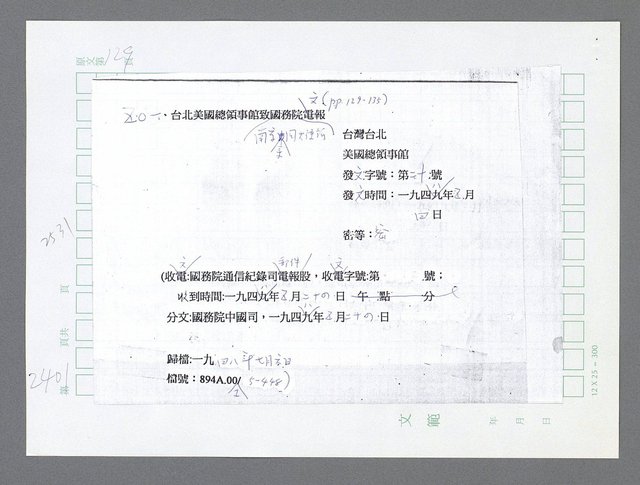 原文第129頁
文(pp 129-135)
、台北美國總領事館致國務院電報
台灣台北
美國總領事館
發文字號：第二十號
發文時間：一九四九年五月
四日
密等：密
(收電:國務院通信紀錄司電報股，收電字號:第 號；
收到時間:一九四九年五月二十四日 午 點 分
分文:國務院中國司，一九四九年五月二十四日
歸檔:一九四八年七月
檔號：894A.00/5-448)
2531
頁
頁共
2401
第
文 範
年 月 日
12 X 25 = 300